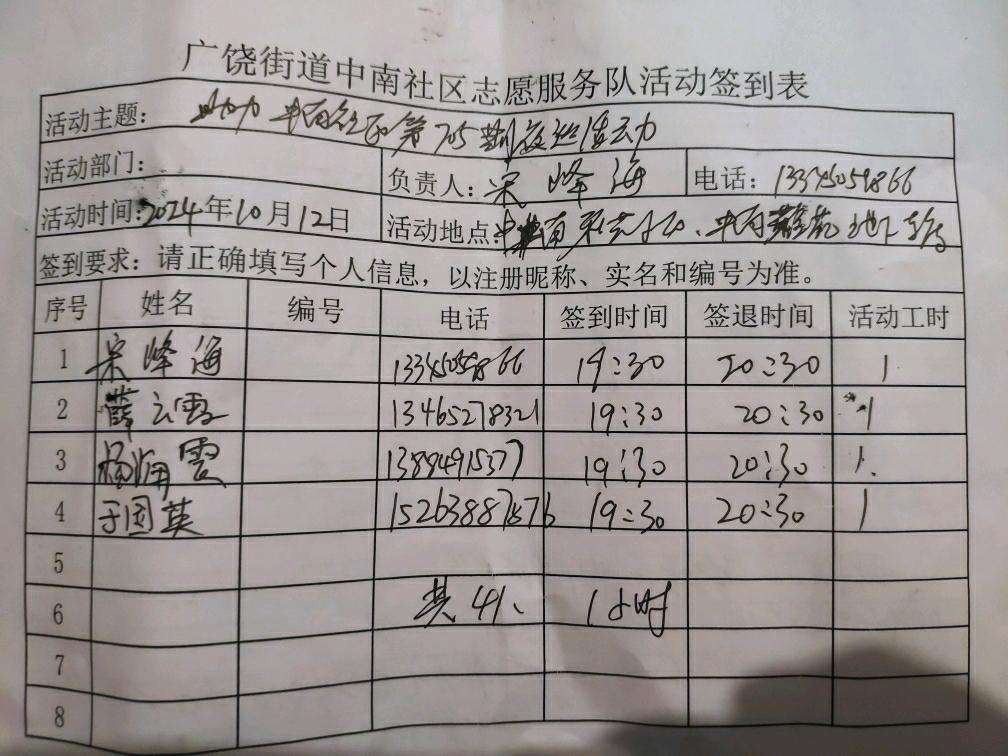 广饶街道中南社区志愿服务队活动签到表
活动主题: 助力中南社区第705期夜巡活动
活动部门:
负责人: 宋峰海 电话: 13345059866
活动时间: 2024年10月12日 活动地点: 中南
签到要求: 请正确填写个人信息，以注册昵称、实名和编号为准。
序号 姓名 编号 电话 签到时间 签退时间 活动工时
1 宋峰海 13345059866 19:30 20:30 1
2 薛云霞 13465278321 19:30 20:30 1
3 杨海霞 13884915377 19:30 20:30 1.
4 于国英 19:30 20:30 1
5
6 共4人、 1小时
7
8